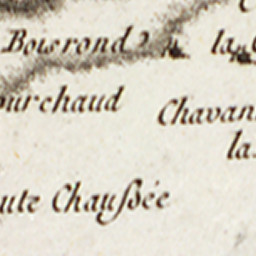 Boisrond
la
ourchaud
Chavan
la
ute Chaussée